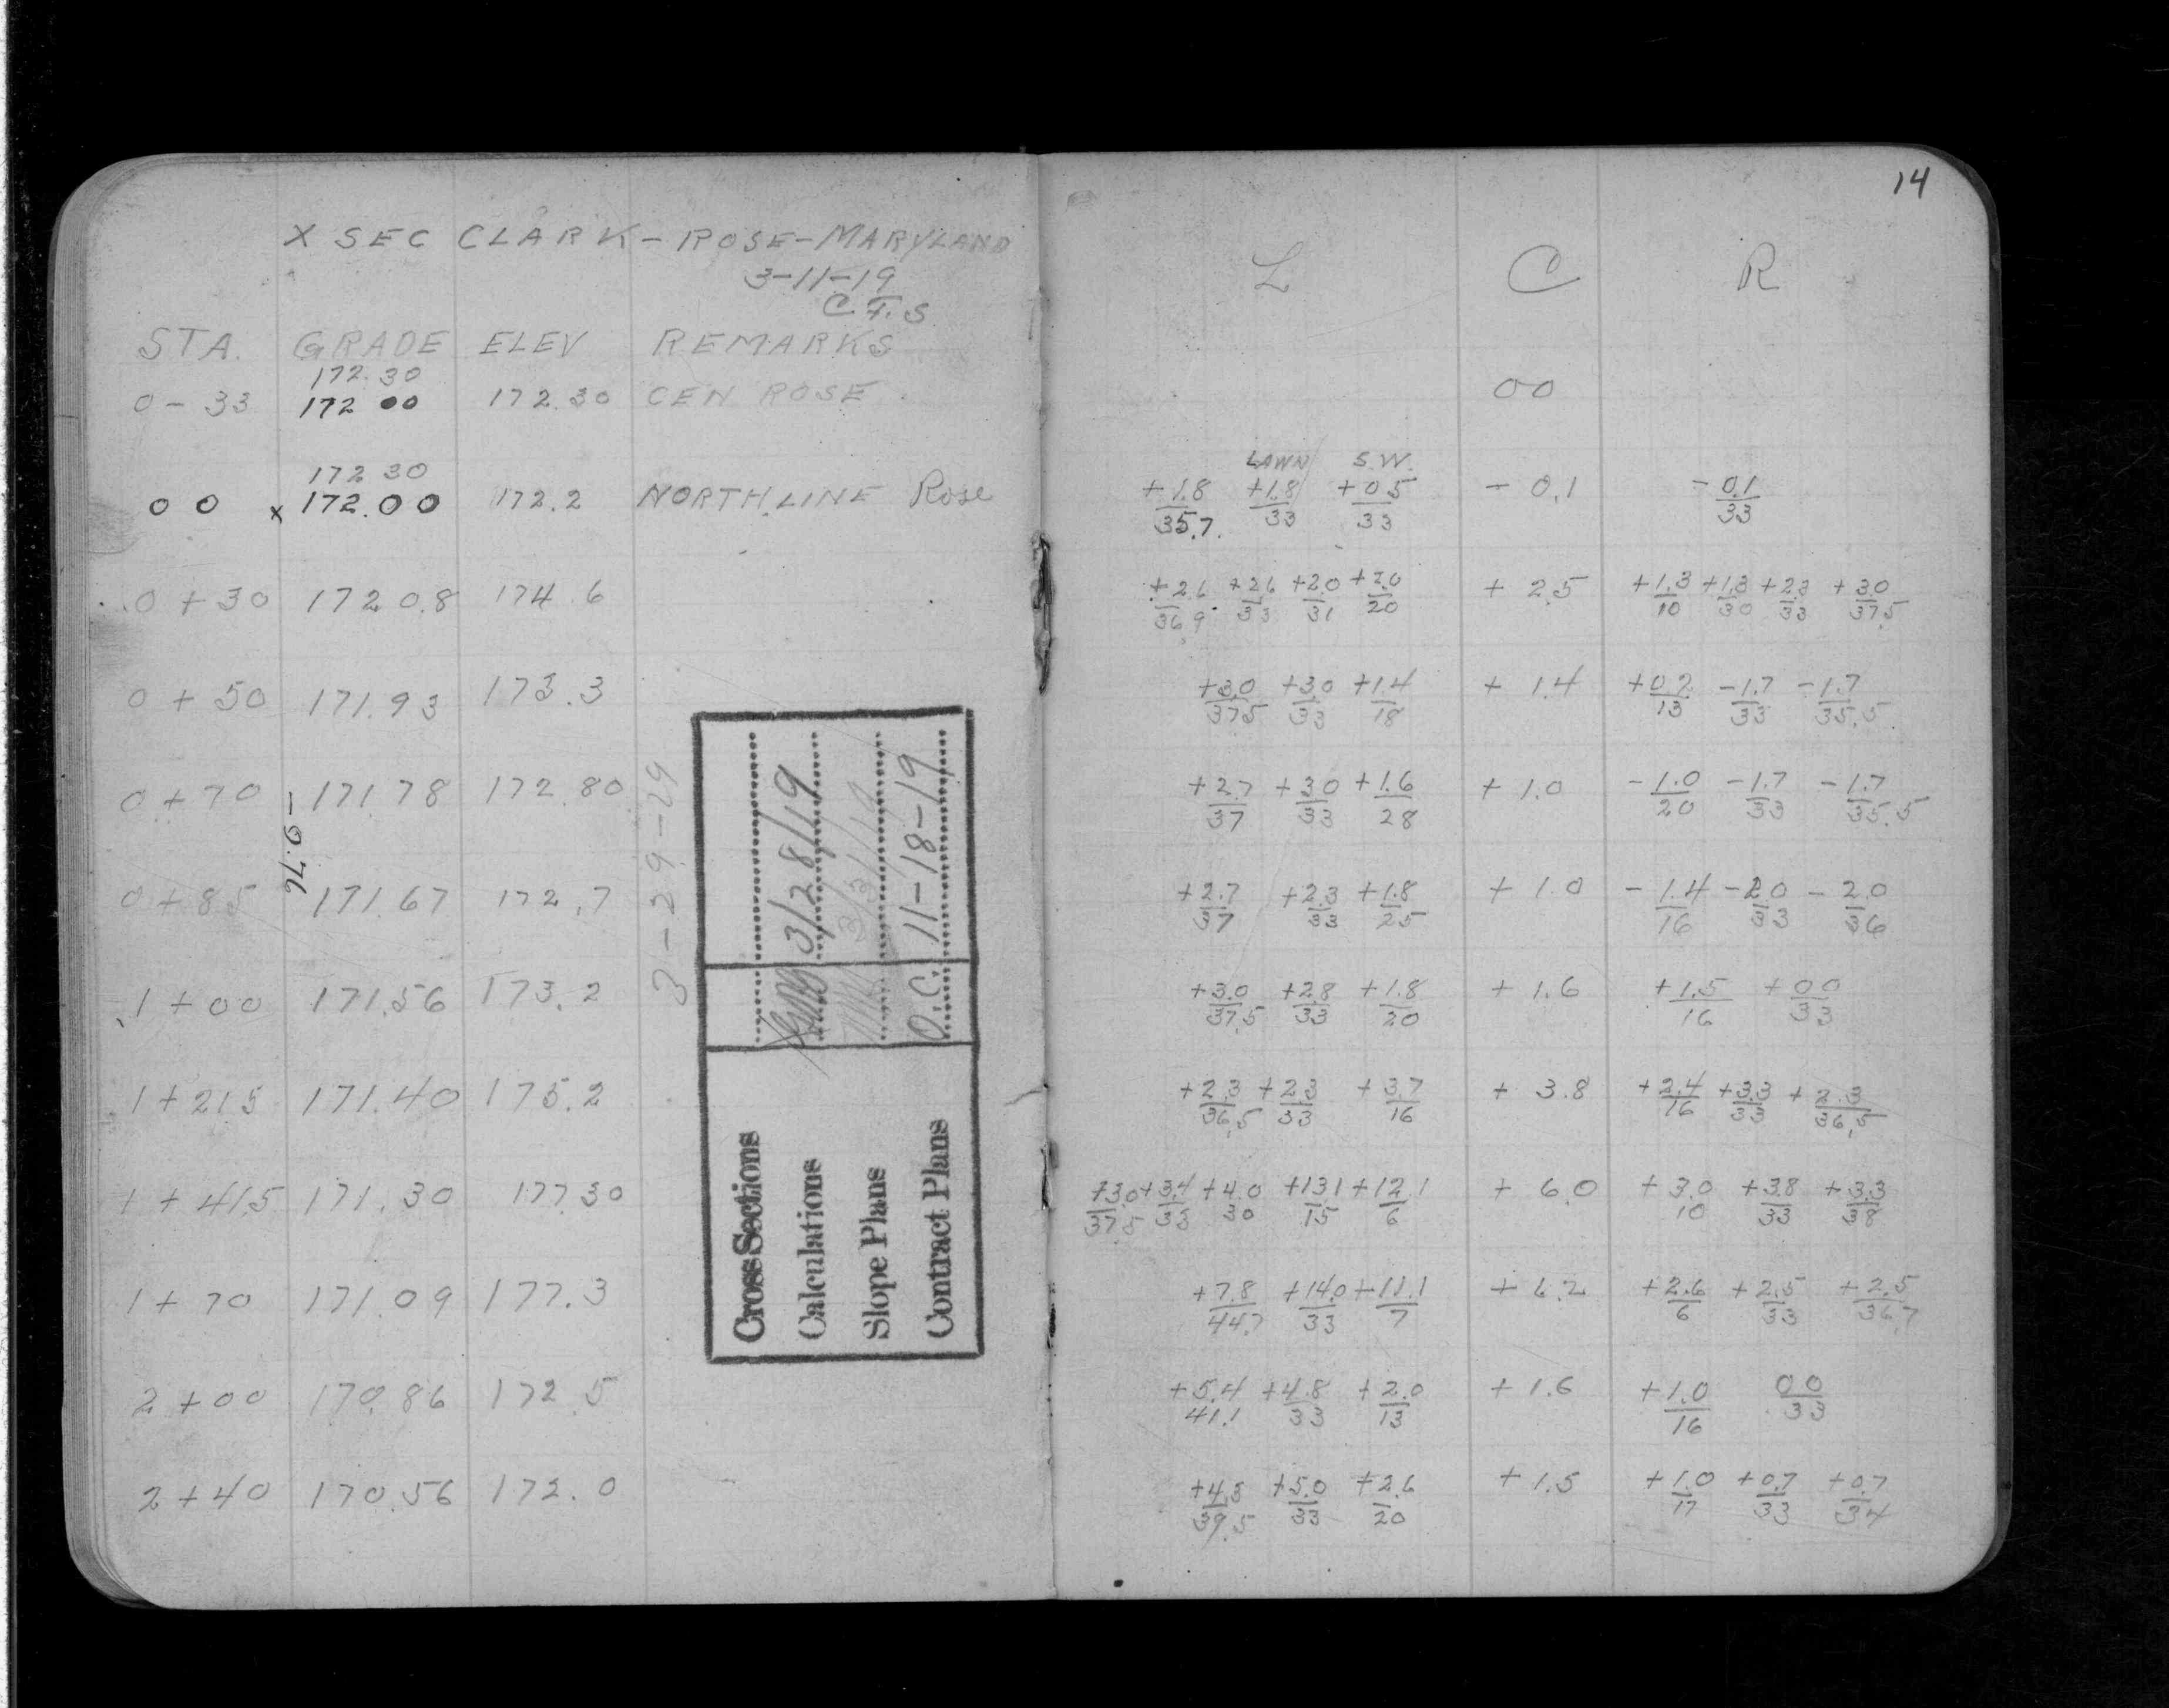 14
X SEC CLARK - ROSE - MARYLAND
3-11-19
C.F.S
STA. GRADE ELEV REMARKS L C R
172.30
0 - 33 172 00 172.30 CEN ROSE 00
172 30 LAWN S.W.
00 x 172.00 172.2 NORTH LINE Rose +1.8/35.7. +1.8/33 +0.5/33 - 0.1 -0.1/33
0 + 30 172 0.8 174.6 +2.6/36.9 +2.6/33 +2.0/31 +2.0/20 + 2.5 +1.3/10 +1.3/30 +2.3/33 +3.0/37.5
0 + 50 171.93 173.3 +3.0/37.5 +3.0/33 +1.4/18 + 1.4 +0.2/13 -1.7/33 -1.7/35.5
0 + 70 171.78 172.80 +2.7/37 +3.0/33 +1.6/28 + 1.0 -1.0/20 -1.7/33 -1.7/35.5
-0.76
0 + 85 171.67 172.7 +2.7/37 +2.3/33 +1.8/25 + 1.0 -1.4/16 -2.0/33 -2.0/36
1 + 00 171.56 173.2 +3.0/37.5 +2.8/33 +1.8/20 + 1.6 +1.5/16 +0.0/33
1 + 21.5 171.40 175.2 +2.3/36.5 +2.3/33 +3.7/16 + 3.8 +2.4/16 +3.3/33 +2.3/36.5
1 + 41.5 171.30 177.30 +3.0/37.5 +3.4/33 +4.0/30 +13.1/15 +12.1/6 + 6.0 +3.0/10 +3.8/33 +3.3/38
1 + 70 171.09 177.3 +7.8/44.7 +14.0/33 +11.1/7 + 6.2 +2.6/6 +2.5/33 +2.5/36.7
2 + 00 170.86 172.5 +5.4/41.1 +4.8/33 +2.0/13 + 1.6 +1.0/16 0.0/33
2 + 40 170.56 172.0 +4.3/39.5 +5.0/33 +2.6/20 + 1.5 +1.0/17 +0.7/33 +0.7/34
3-29-19
Cross Sections
Calculations 3/28/19
Slope Plans
Contract Plans O.C. 11-18-19